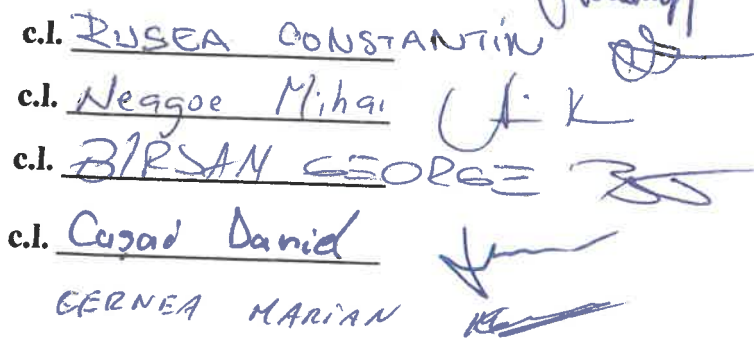 c.l. RUSEA CONSTANTIN
c.l. Neagoe Mihai
c.l. BIRSAN GEORGE
c.l. Daniel
CERNEA MARIAN